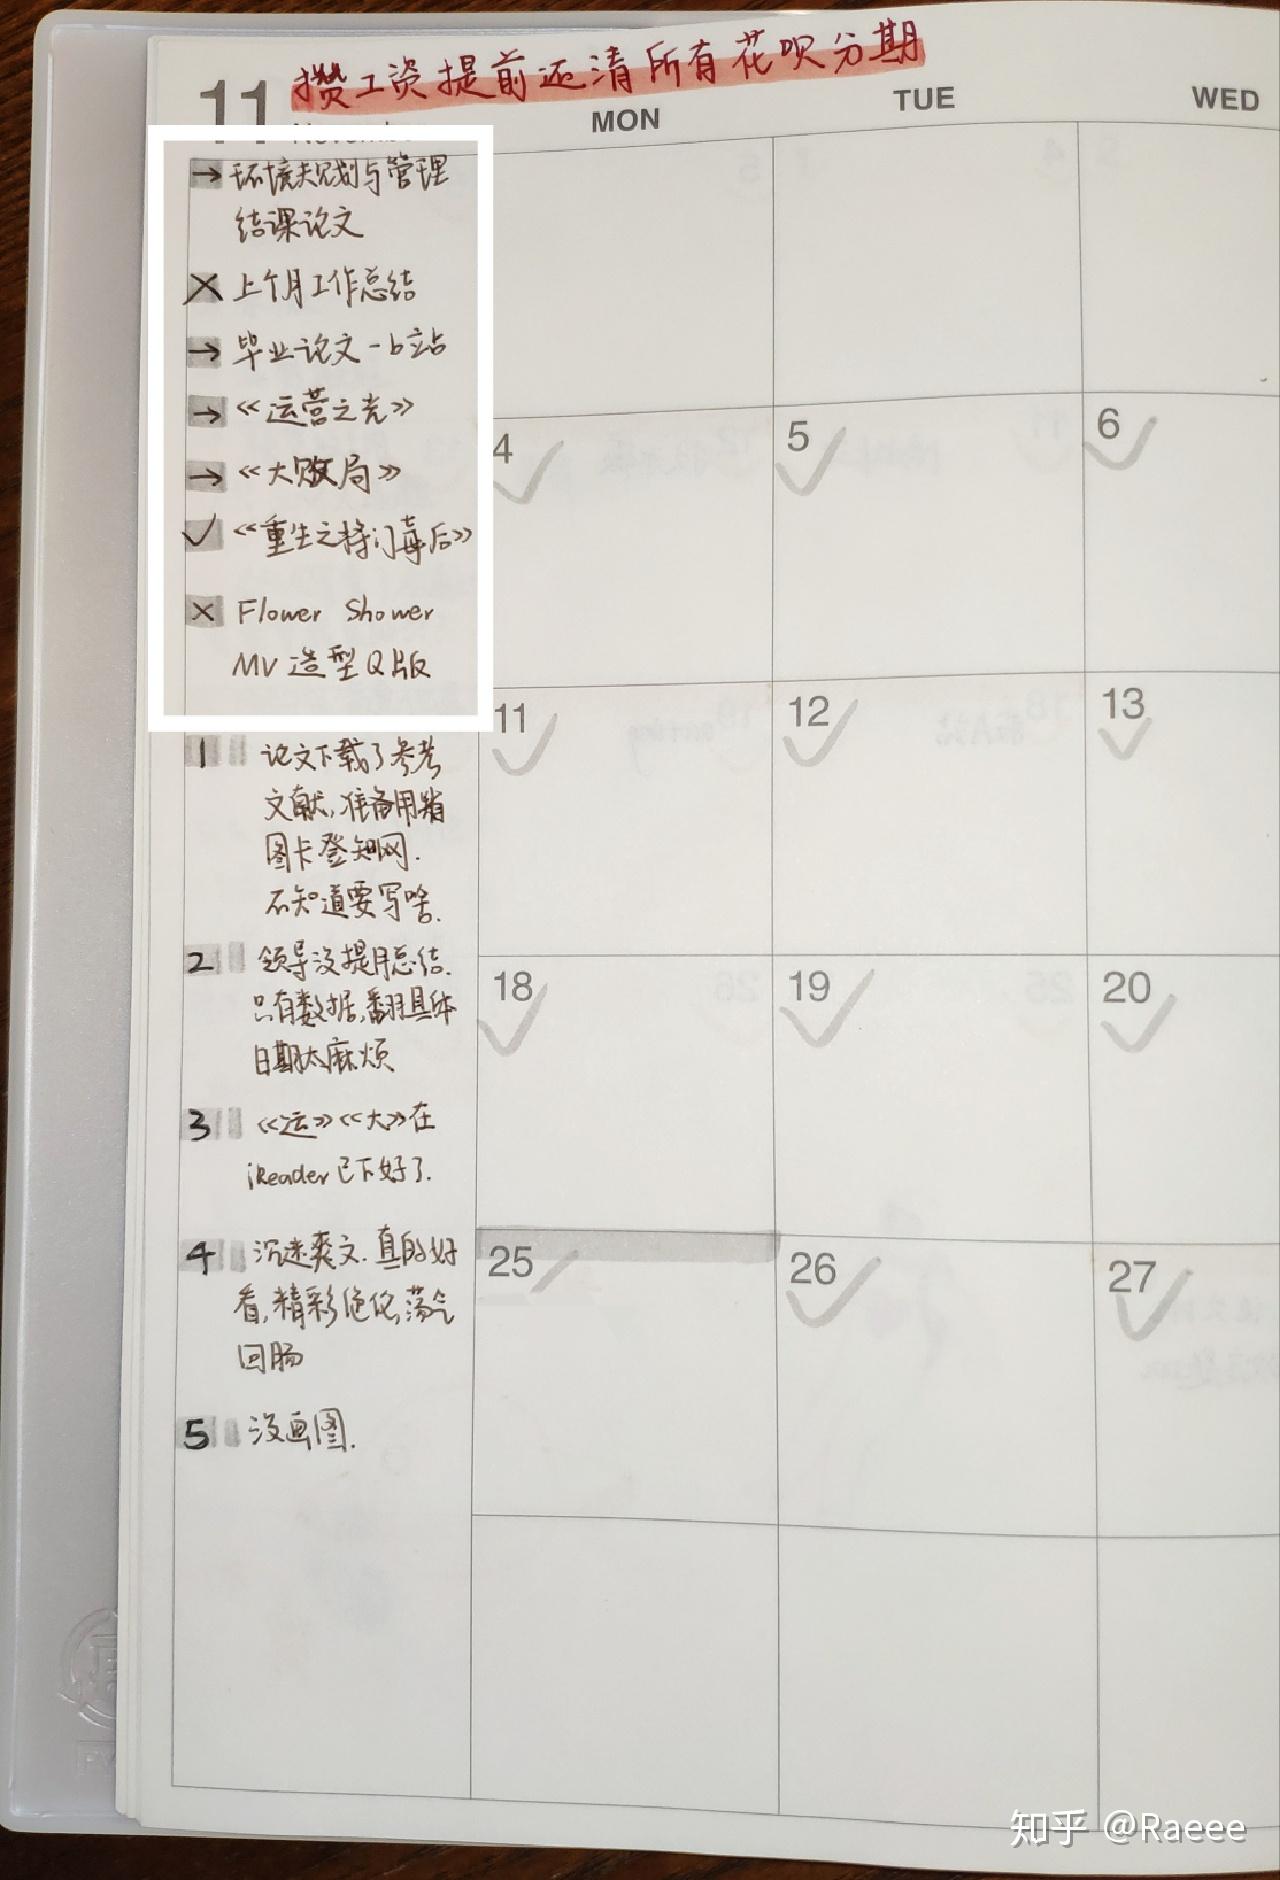 攒工资提前还清所有花呗分期
11
November
MON
TUE
WED
→环境规划与管理
结课论文
×上个月工作总结
→毕业论文-b站
→《运营之光》
→《大败局》
✓《重生之将门毒后》
×Flower Shower
MV造型Q版
4
5
6
11
12
13
1 论文下载了参考
文献,准备用省
图卡登知网.
不知道要写啥.
2 领导没提月总结.
只有数据,翻具体
日期太麻烦
18
19
20
3 《运》《大》在
iReader已下好了.
4 沉迷爽文.真的好
看,精彩绝伦,荡气
回肠
25
26
27
5 没画图.
知乎 @Raeee